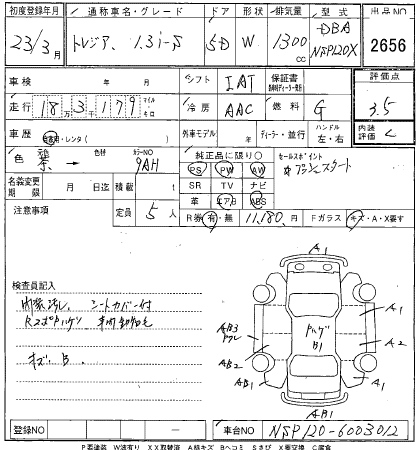 初度登録年月 通称車名・グレード ドア 形状 排気量 型式 出品NO
23/3月 トレジア 1.3i-S 5D W 1300cc DBA NSP120X 2656
車検 年 月 シフト IAT 保証書 評価点
走行 183179 マイル キロ 冷房 AAC 燃料 G 3.5
車歴 自家用・レンタ( ) 外車モデル ディーラー・並行 ハンドル 左・右 内装評価 C
色 紫 → 色替 カラーNO 9AH 純正品に限り○ セールスポイント
PS PW AW プッシュスタート
名義変更期限 月 日迄 積載 t SR TV ナビ
注意事項 定員 5人 革 エアB ABS
R券 有・無 11,180円 Fガラス キズ・A・X要す
検査員記入
シートカバー付
キズ・B
A1
A1
AB3
AB2
A2
AB1
A1
AB1
B1
登録NO 車台NO NSP120-6003012
P要塗装 W波有り XX取替済 A線キズ Bヘコミ Sさび X要交換 C腐食